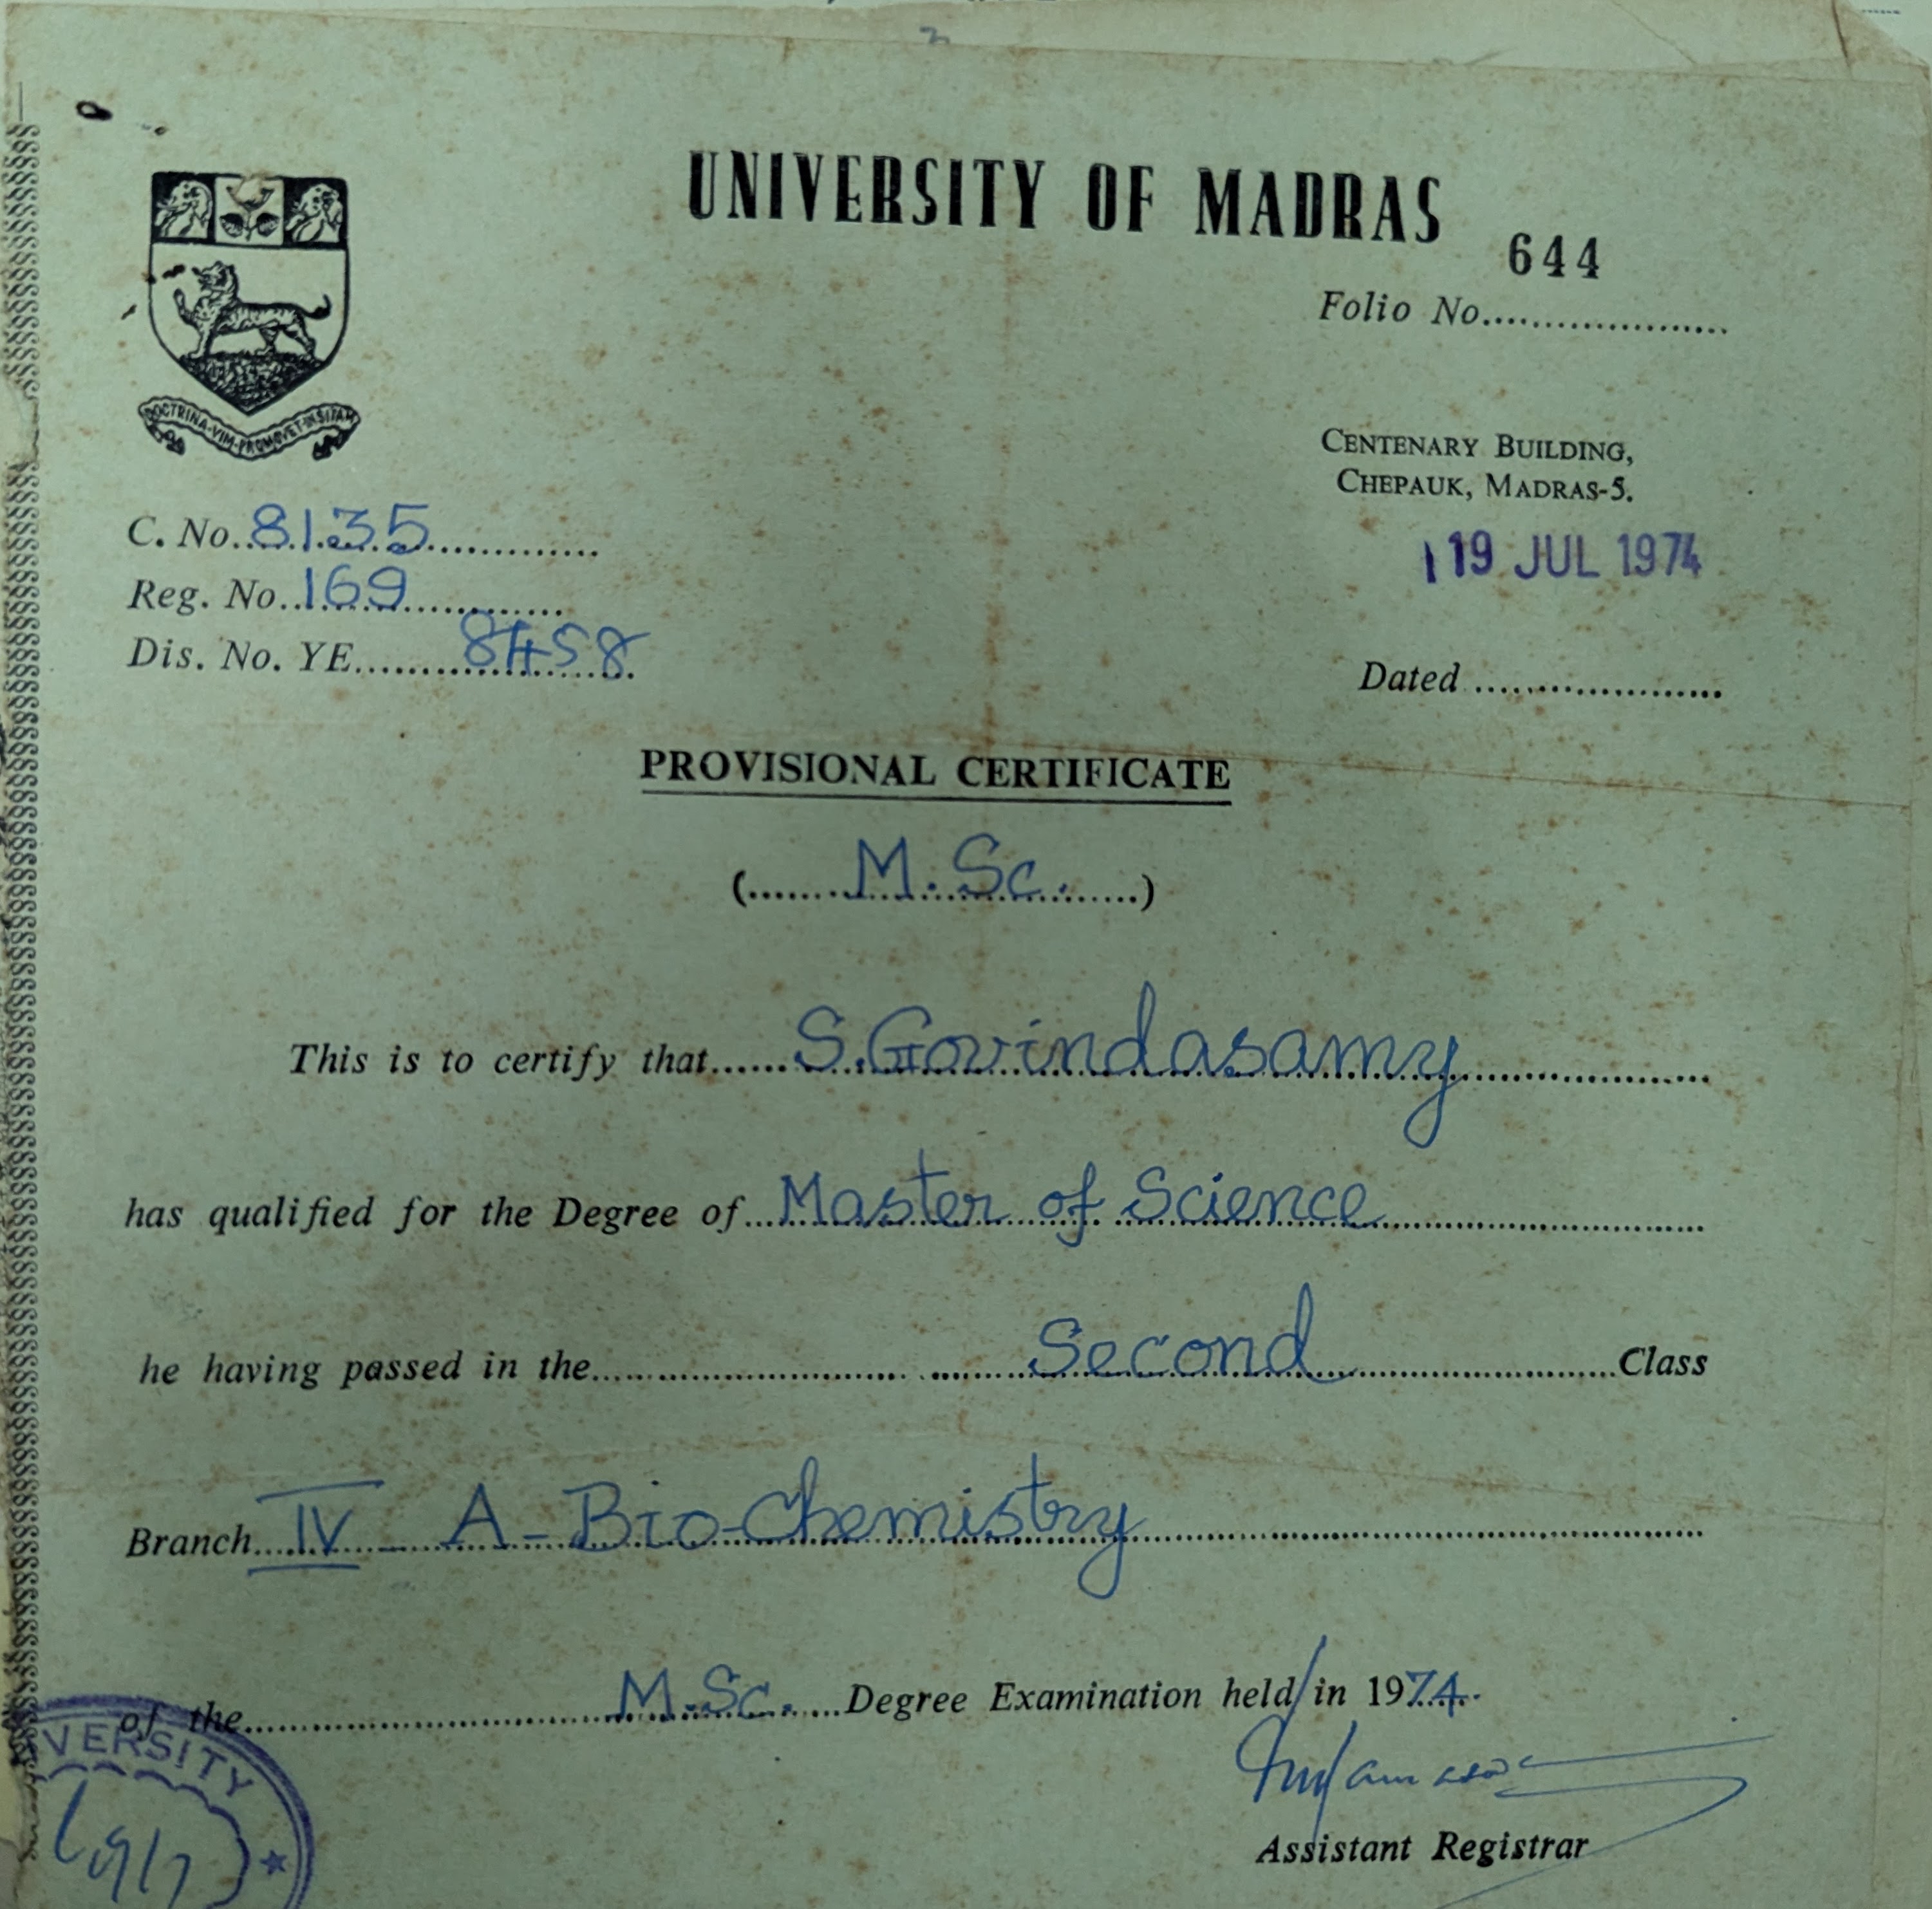 UNIVERSITY OF MADRAS
644
Folio No....................
DOCTRINA VIM PROMOVET INSITAM
CENTENARY BUILDING,
CHEPAUK, MADRAS-5.
C. No. 8135
19 JUL 1974
Reg. No. 169
Dis. No. YE 8458
Dated ....................
PROVISIONAL CERTIFICATE
( M.Sc. )
This is to certify that S.Govindasamy
has qualified for the Degree of Master of Science
he having passed in the Second Class
Branch IV - A - Bio-Chemistry
of the M.Sc. Degree Examination held in 1974.
VERSITY
19/7
Assistant Registrar